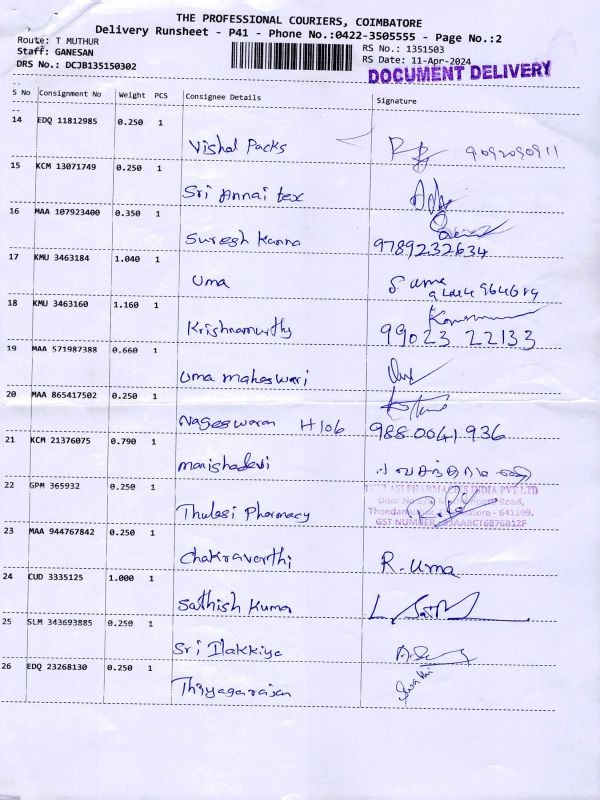 THE PROFESSIONAL COURIERS, COIMBATORE
Delivery Runsheet - P41 - Phone No.:0422-3505555 - Page No.:2
Route: T MUTHUR
Staff: GANESAN
DRS No.: DCJB135150302
RS No.: 1351503
RS Date: 11-Apr-2024
DOCUMENT DELIVERY
S No Consignment No Weight PCS Consignee Details Signature
14 EDQ 11812985 0.250 1
Vishal Packs
15 KCM 13071749 0.250 1
Sri Annai tex
16 MAA 107923400 0.350 1
Suresh Kanna 9789232634
17 KMU 3463184 1.040 1
Uma
18 KMU 3463160 1.160 1
Krishnamurthy 99023 22133
19 MAA 571987388 0.660 1
Uma maheswari
20 MAA 865417502 0.250 1
Nageswaran H106 988.0041.936
21 KCM 21376075 0.790 1
manishadevi
22 GPM 365932 0.250 1
PHARMACIES INDIA PVT LTD
Road,
- 641109.
GST NUMBER
Thulasi Pharmacy
23 MAA 944767842 0.250 1
Chakravarthi R. Uma
24 CUD 3335125 1.000 1
Sathish Kuma
25 SLM 343693885 0.250 1
Sri Ilakkiya
26 EDQ 23268130 0.250 1
Thiyagarajan Swathi